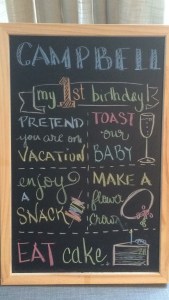 CAMPBELL
my 1st birthday!
PRETEND
you are on
VACATION
TOAST
our
BABY
enjoy
A
SNACK
MAKE A
flower
crown
EAT cake.